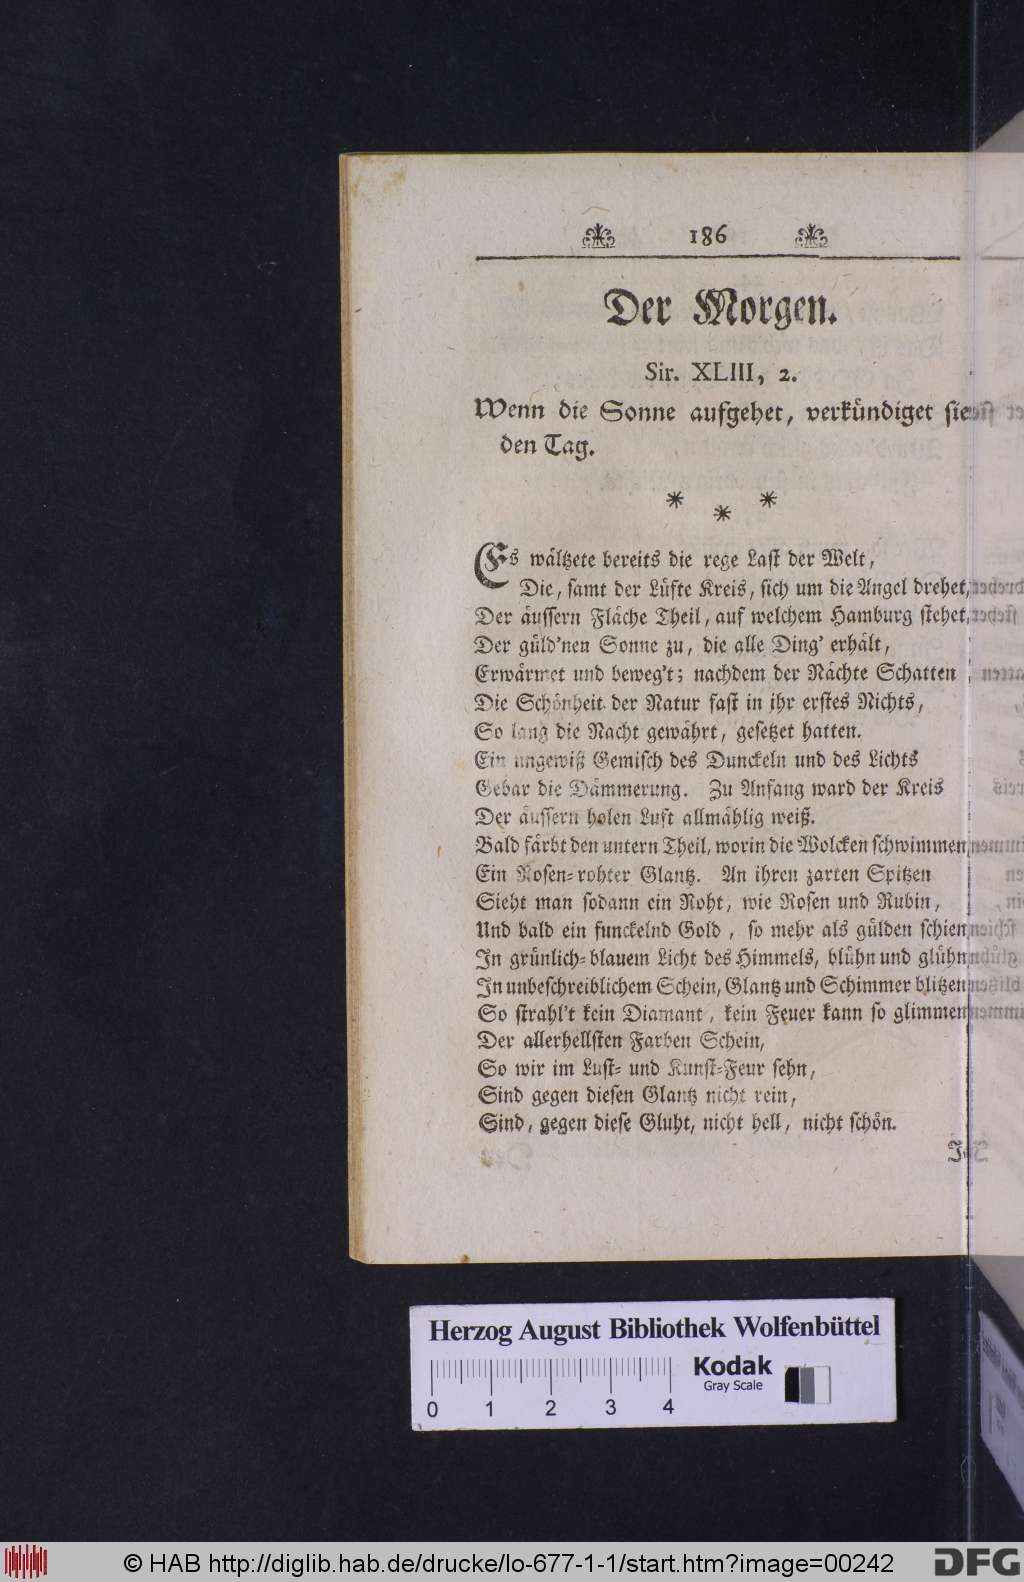 186
Der Morgen.
Sir. XLIII, 2.
Wenn die Sonne aufgehet, verkündiget sie
den Tag.
* * *
Es wältzete bereits die rege Last der Welt,
Die, samt der Lüfte Kreis, sich um die Angel drehet,
Der äussern Fläche Theil, auf welchem Hamburg stehet,
Der güld'nen Sonne zu, die alle Ding' erhält,
Erwärmet und beweg't; nachdem der Nächte Schatten
Die Schönheit der Natur fast in ihr erstes Nichts,
So lang die Nacht gewährt, gesetzet hatten.
Ein ungewiß Gemisch des Dunckeln und des Lichts
Gebar die Dämmerung. Zu Anfang ward der Kreis
Der äussern holen Luft allmählig weiß.
Bald färbt den untern Theil, worin die Wolcken schwimmen,
Ein Rosen-rohter Glantz. An ihren zarten Spitzen
Sieht man sodann ein Roht, wie Rosen und Rubin,
Und bald ein funckelnd Gold, so mehr als gülden schien,
In grünlich-blauem Licht des Himmels, blühn und glühn,
In unbeschreiblichem Schein, Glantz und Schimmer blitzen
So strahl't kein Diamant, kein Feuer kann so glimmen
Der allerhellsten Farben Schein,
So wir im Lust- und Kunst-Feur sehn,
Sind gegen diesen Glantz nicht rein,
Sind, gegen diese Gluht, nicht hell, nicht schön.
Herzog August Bibliothek Wolfenbüttel
Kodak
Gray Scale
0 1 2 3 4
© HAB http://diglib.hab.de/drucke/lo-677-1-1/start.htm?image=00242
DFG